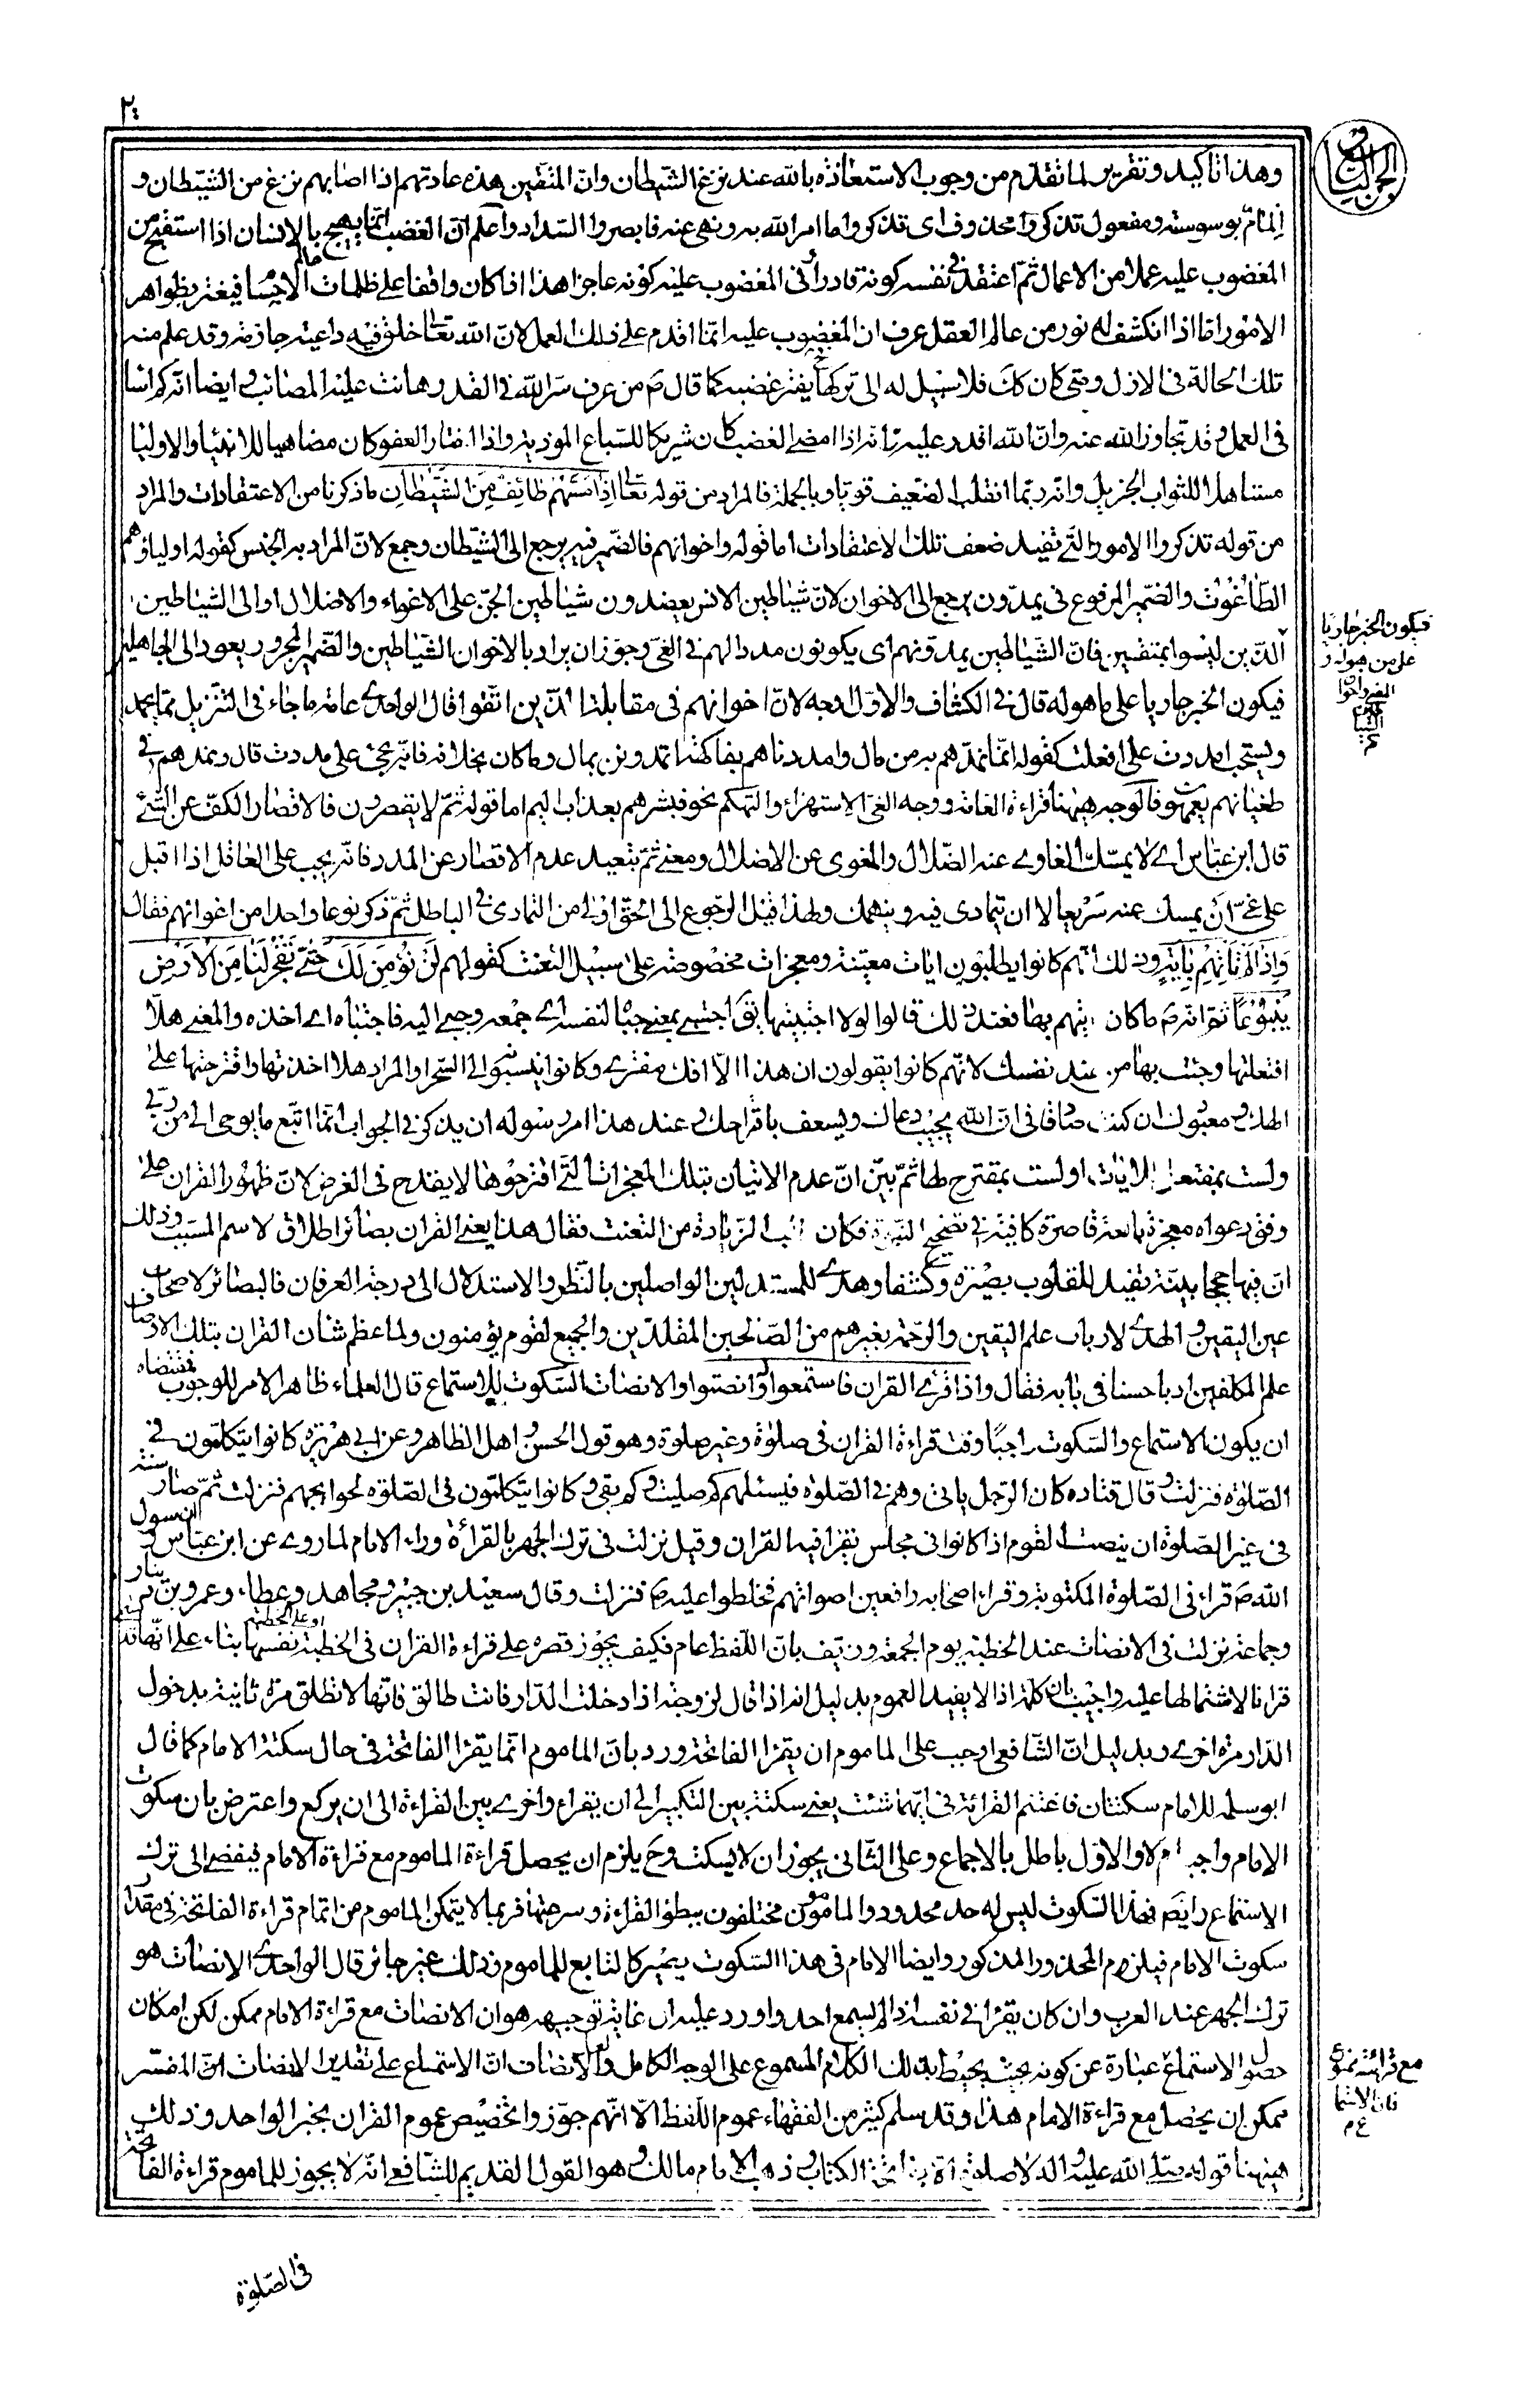 ٢٠
الجزء التاسع
وهذا تاكيد وتقرير لما تقدم من وجوب الاستعاذة بالله عند نزغ الشيطان وان المتقين هذه عادتهم اذا اصابهم نزغ من الشيطان و
المام بوسوسته ومفعول تذكروا محذوف اى تذكروا ما امر الله به ونهى عنه فابصروا السداد واعلم ان الغضب انما يهيج بالانسان اذا استقبح من
المغضوب عليه عملا من الاعمال ثم اعتقد فى نفسه كونه قادرا وفى المغضوب عليه كونه عاجزا هذا اذا كان واقفا على ظلمات عالم الاجسام فيغتر بظواهر
الامور اما اذا انكشف له نور من عالم العقل عرف ان المغضوب عليه انما اقدم على ذلك العمل لان الله تعالى خلق فيه داعية جازمة وقد علم منه
تلك الحالة فى الازل ومتى كان كك فلا سبيل له الى تركها فح يفتر غضبه كما قال ص من عرف سر الله فى القدر هانت عليه المصائب وايضا انه كم اساء
فى العمل وقد تجاوز الله عنه وان الله اقدر عليه وانه اذا امضى الغضب كان شريكا للسباع الموذية واذا اختار العفو كان مضاهيا للانبياء والاولياء
مستاهلا للثواب الجزيل وانه ربما انقلب الضعيف قويا وبالجملة فالمراد من قوله تعالى اذا مسهم طائف من الشيطان ما ذكرنا من الاعتقادات والمراد
من قوله تذكروا الامور التى تفيد ضعف تلك الاعتقادات اما قوله واخوانهم فالضمير فيه يرجع الى الشيطان وجمع لان المراد به الجنس كقوله اولياؤهم
الطاغوت والضمير المرفوع فى يمدون يرجع الى الاخوان لان شياطين الانس يعضدون شياطين الجن على الاغواء والاضلال او الى الشياطين
فيكون الخبر جاريا
على من هوله و
المعنى واخوان
الشياطين
الذين ليسوا بمتقين فان الشياطين يمدونهم اى يكونون مددا لهم فى الغى وجوز ان يراد بالاخوان الشياطين والضمير المجرور يعود الى الجاهلين
فيكون الخبر جاريا على ما هو له قال فى الكشاف والاول اوجه لان اخوانهم فى مقابلة الذين اتقوا قال الواحدى عامة ما جاء فى التنزيل مما يحمد
ويستحب امددت على افعلت كقوله انما نمدهم به من مال وامددناهم بفاكهة اتمدونن بمال وما كان بخلافه فانه يجئ على مددت قال ويمدهم فى
طغيانهم يعمهون فالوجه ههنا قراءة العامة ووجه الغى الاستهزاء والتهكم نحو فبشرهم بعذاب اليم اما قوله ثم لا يقصرون فالاقصار الكف عن الشئ
قال ابن عباس اى لا يمسك الغاوى عند الضلال والمغوى عن الاضلال ومعنى ثم تبعيد عدم الاقصار عن المدد فانه يجب على العاقل اذا اقبل
على غى ان يمسك عنه سريعا لا ان يتمادى فيه وينهمك ولهذا قيل الرجوع الى الحق اولى من التمادى فى الباطل ثم ذكر نوعا واحدا من اغوائهم فقال
واذا لم تاتهم باية وذلك انهم كانوا يطلبون ايات معينة ومعجزات مخصوصة على سبيل التعنت كقولهم لن نؤمن لك حتى تفجر لنا من الارض
ينبوعا ثم انه ص ما كان ياتيهم بها فعند ذلك قالوا لولا اجتبيتها يق اجتبى بمعنى جباه لنفسه اى جمعه وجبى اليه فاجتباه اى اخذه والمعنى هلا
افتعلتها وجئت بها من عند نفسك لانهم كانوا يقولون ان هذا الا افك مفترى وكانوا ينسبونه الى السحر او المراد هلا اخذتها واقترحتها على
الهك ومعبودك ان كنت صادقا فى ان الله يجيب دعاك ويسعف باقتراحك وعند هذا امر رسوله ان يذكر فى الجواب انما اتبع ما يوحى الى من ربى
ولست بمفتعل للايات او لست بمقترح لها ثم بين ان عدم الاتيان بتلك المعجزات التى اقترحوها لا يقدح فى الغرض لان ظهور القران على
وفق دعواه معجزة بالغة قاصرة كافية فى تصحيح النبوة فكان طلب الزيادة من التعنت فقال هذا يعنى القران بصائر اطلاق لاسم المسبب وذلك
ان فيها حججا بينة تفيد للقلوب بصيرة وكشفا وهدى للمستدلين الواصلين بالنظر والاستدلال الى درجة العرفان فالبصائر لاصحاب
عين اليقين والهدى لارباب علم اليقين والرحمة بغيرهم من الصالحين المقلدين والجميع لقوم يؤمنون ولما عظم شان القران بتلك الاوصاف
علم المكلفين ادبا حسنا فى بابه فقال واذا قرئ القران فاستمعوا له وانصتوا والانصات السكوت للاستماع قال العلماء ظاهر الامر للوجوب فمقتضاه
ان يكون الاستماع والسكوت واجبا وقت قراءة القران فى صلوة وغير صلوة وهو قول الحسن واهل الظاهر وعن ابى هريرة كانوا يتكلمون فى
الصلوة فنزلت وقال قتادة كان الرجل ياتى وهم فى الصلوة فيسئلهم كم صليتم وكم بقى وكانوا يتكلمون فى الصلوة لحوايجهم فنزلت ثم صار سنة
فى غير الصلوة ان ينصت القوم اذا كانوا فى مجلس يقرا فيه القران وقيل نزلت فى ترك الجهر بالقراءة وراء الامام لما روى عن ابن عباس ان رسول
الله ص قراء فى الصلوة المكتوبة وقراء اصحابه رافعين اصواتهم فخلطوا عليه ص فنزلت وقال سعيد بن جبير ومجاهد وعطاء وعمرو بن دينار
وجماعة نزلت فى الانصات عند الخطبة يوم الجمعة وزيف بان اللفظ عام فكيف يجوز قصره على قراءة القران فى الخطبة او على الخطبة نفسها بناء على انها تسمى
قرانا لاشتمالها عليه واجيب بان كلمة اذا لا يفيد العموم بدليل انه اذا قال لزوجته اذا دخلت الدار فانت طالق فانها لا تطلق مرة ثانية بدخول
الدار مرة اخرى وبدليل ان الشافعى اوجب على الماموم ان يقرا الفاتحة ورد بان الماموم انما يقرا الفاتحة فى حال سكتة الامام كما قال
ابو سلمه للامام سكتتان فاغتنم القرائة فى ايهما شئت يعنى سكتة بين التكبير الى ان يقراء واخرى بين القراءة الى ان يركع واعترض بان سكوت
الامام واجب ام لا والاول باطل بالاجماع وعلى الثانى يجوز ان لا يسكت وح يلزم ان يحصل قراءة الماموم مع قراءة الامام فيفضى الى ترك
الاستماع وايضا فهذا السكوت ليس له حد محدود والمامومون مختلفون ببطؤ القراءة وسرعتها فربما لا يتمكن الماموم من اتمام قراءة الفاتحة فى مقدار
سكوت الامام فيلزم المحذور المذكور وايضا الامام فى هذا السكوت يصير كالتابع للماموم وذلك غير جائز قال الواحدى الانصات هو
ترك الجهر عند العرب وان كان يقرا فى نفسه اذا لم يسمع احد واورد عليه ان غاية توجيهه هو ان الانصات مع قراءة الامام ممكن لكن امكان
حصول الاستماع عبارة عن كونه بحيث يحيط بذلك الكلام المسموع على الوجه الكامل والانصاف ان الاستماع على تقدير الانصات المفسر
مع قرائته ممنوع
فان الاستما
ع م
ممكن ان يحصل مع قراءة الامام هذا وقد سلم كثير من الفقهاء عموم اللفظ الا انهم جوزوا تخصيص عموم القران بخبر الواحد وذلك
ههنا قوله صلى الله عليه واله لا صلوة الا بفاتحة الكتاب وذهب الامام مالك وهو القول القديم للشافعى انه لا يجوز للماموم قراءة الفاتحة
فى الصلوة